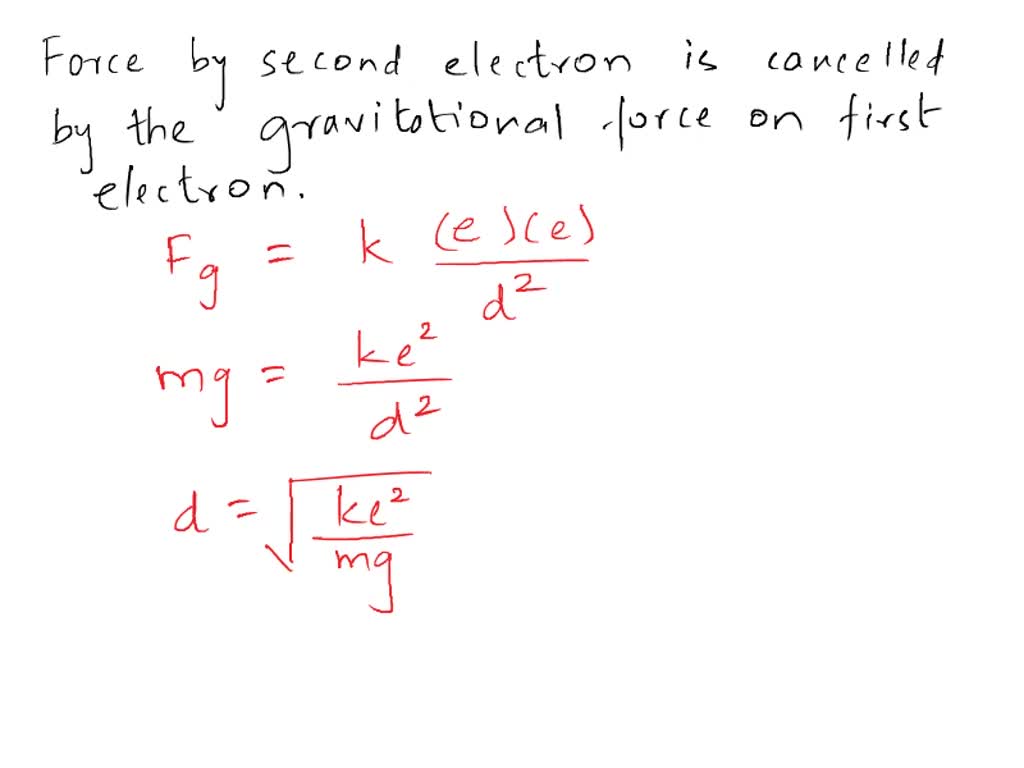 Force by second electron is cancelled
by the gravitational force on first
electron.
Fg = k (e)(e) / d²
mg = ke² / d²
d = √(ke² / mg)